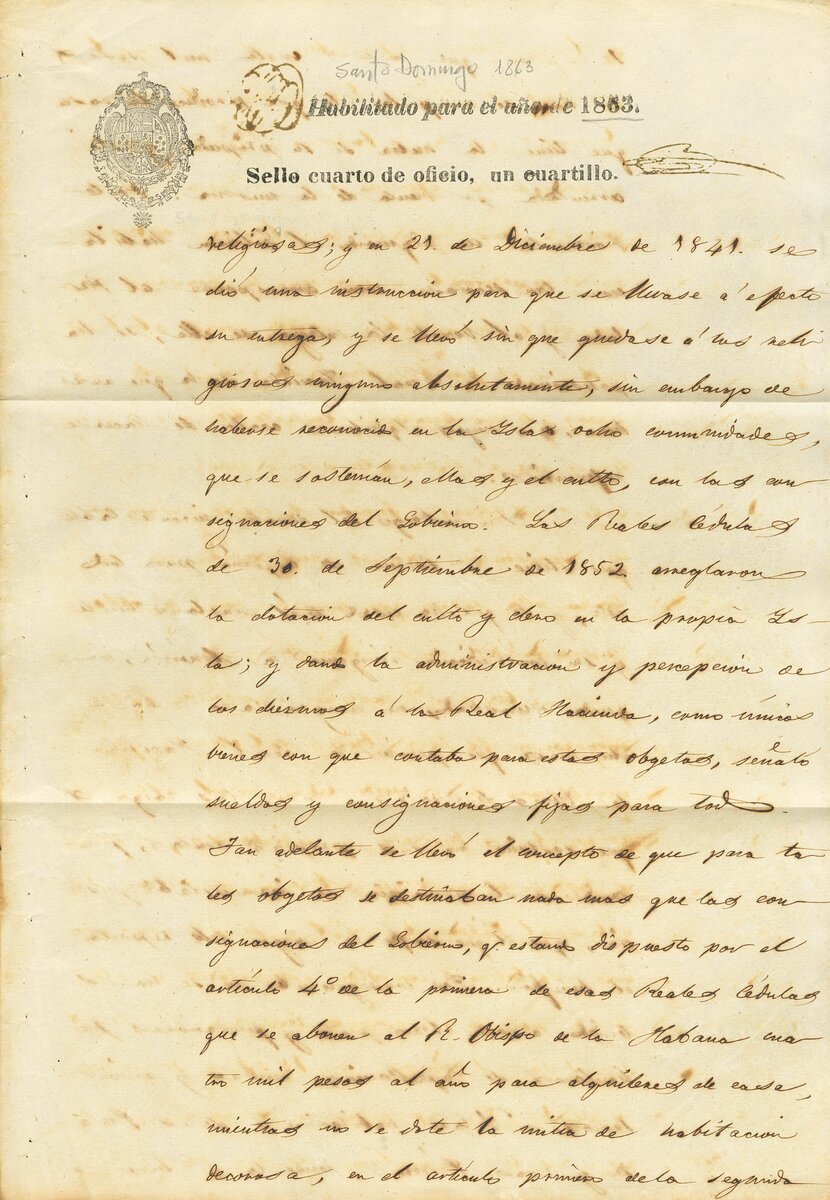 Santo Domingo 1863
Habilitado para el año de 1863.
Sello cuarto de oficio, un cuartillo.
religiosas; y en 21. de Diciembre de 1841. se
dió una instruccion para que se llevase á efecto
su entrega, y se llevó sin que quedase á los reli-
giosos ninguno absolutamente, sin embargo de
haberse reconocido en la Isla ocho comunidades,
que se sostenian, ellas y el culto, con las con-
signaciones del Gobierno. Las Reales Cédulas
de 30. de Septiembre de 1852. arreglaron
la dotacion del culto y clero en la propia Is-
la; y dando la administracion y percepcion de
los diezmos á la Real Hacienda, como únicos
bienes con que contaba para estos obgetos, señaló
sueldos y consignaciones fijas para todo.
Tan adelante se llevó el concepto de que para ta
les obgetos se destinaban nada mas que las con-
signaciones del Gobierno, q. estando dispuesto por el
artículo 4º de la primera de esas Reales Cédulas
que se abonen al R. Obispo de la Habana cua
tro mil pesos al año para alquileres de casa,
mientras no se dote la mitra de habitacion
decorosa, en el artículo primero de la segunda